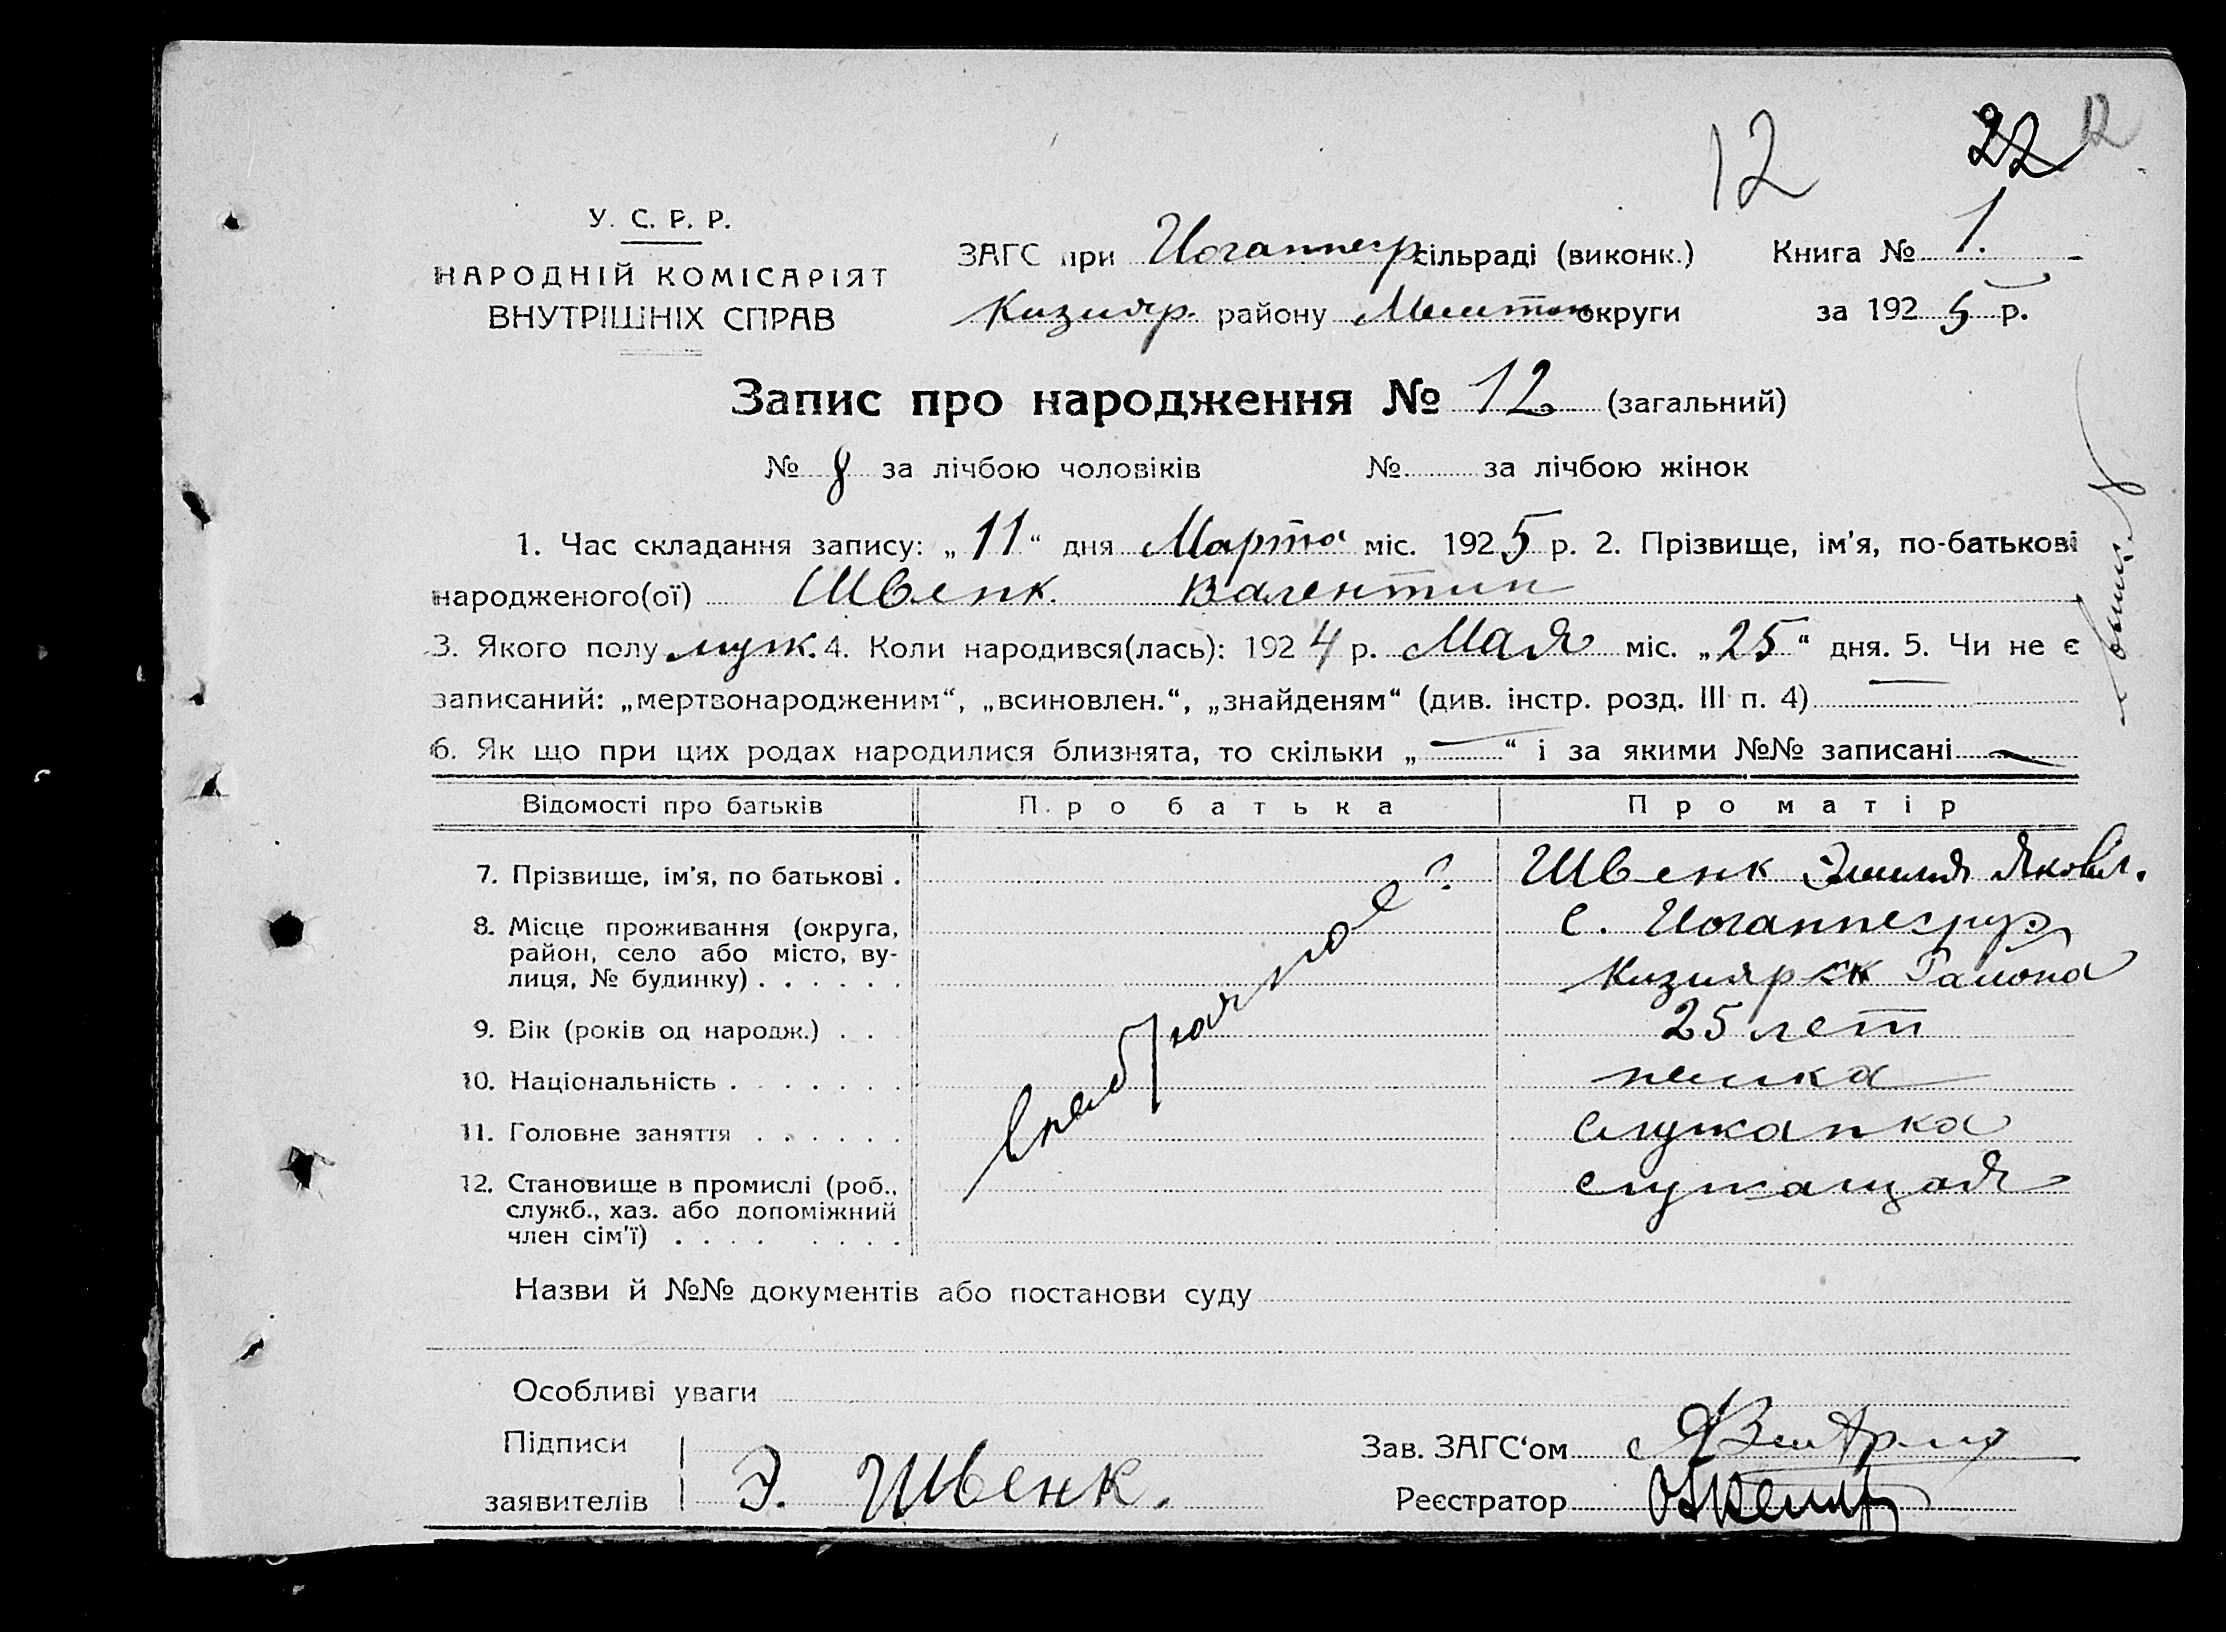 12 22 12
У. С. Р. Р.
НАРОДНІЙ КОМІСАРІЯТ
ВНУТРІШНІХ СПРАВ
ЗАГС при Иоганнеср сільраді (виконк.) Книга № 1.
Кизияр. району Мелитоп округи за 1925 р.
Запис про народження № 12 (загальний)
№ 8 за лічбою чоловіків № за лічбою жінок
1. Час складання запису: „11“ дня Марта міс. 1925 р. 2. Прізвище, ім’я, по-батькові
народженого(ої) Швенк Валентин
3. Якого полу муж. 4. Коли народився(лась): 1924 р. Мая міс. „25“ дня. 5. Чи не є
записаний: „мертвонародженим“, „всиновлен.“, „знайденям“ (див. інстр. розд. III п. 4) —
6. Як що при цих родах народилися близнята, то скільки „—“ і за якими №№ записані —
Відомості про батьків Про батька Про матір
7. Прізвище, ім’я, по батькові . Швенк Эмилия Яковл.
8. Місце проживання (округа, с. Иоганнесру
район, село або місто, ву-
лиця, № будинку) . . . . . . Кизиярск Района
9. Вік (років од народж.) . . 25 лет
10. Національність . . . . . . . немка
11. Головне заняття . . . . . . служанка
12. Становище в промислі (роб., служащая
служб., хаз. або допоміжний
член сім’ї) . . . . . . . .
внебрачное
Назви й №№ документів або постанови суду
Особливі уваги
Підписи
заявителів Э. Швенк.
Зав. ЗАГС‘ом
Реєстратор